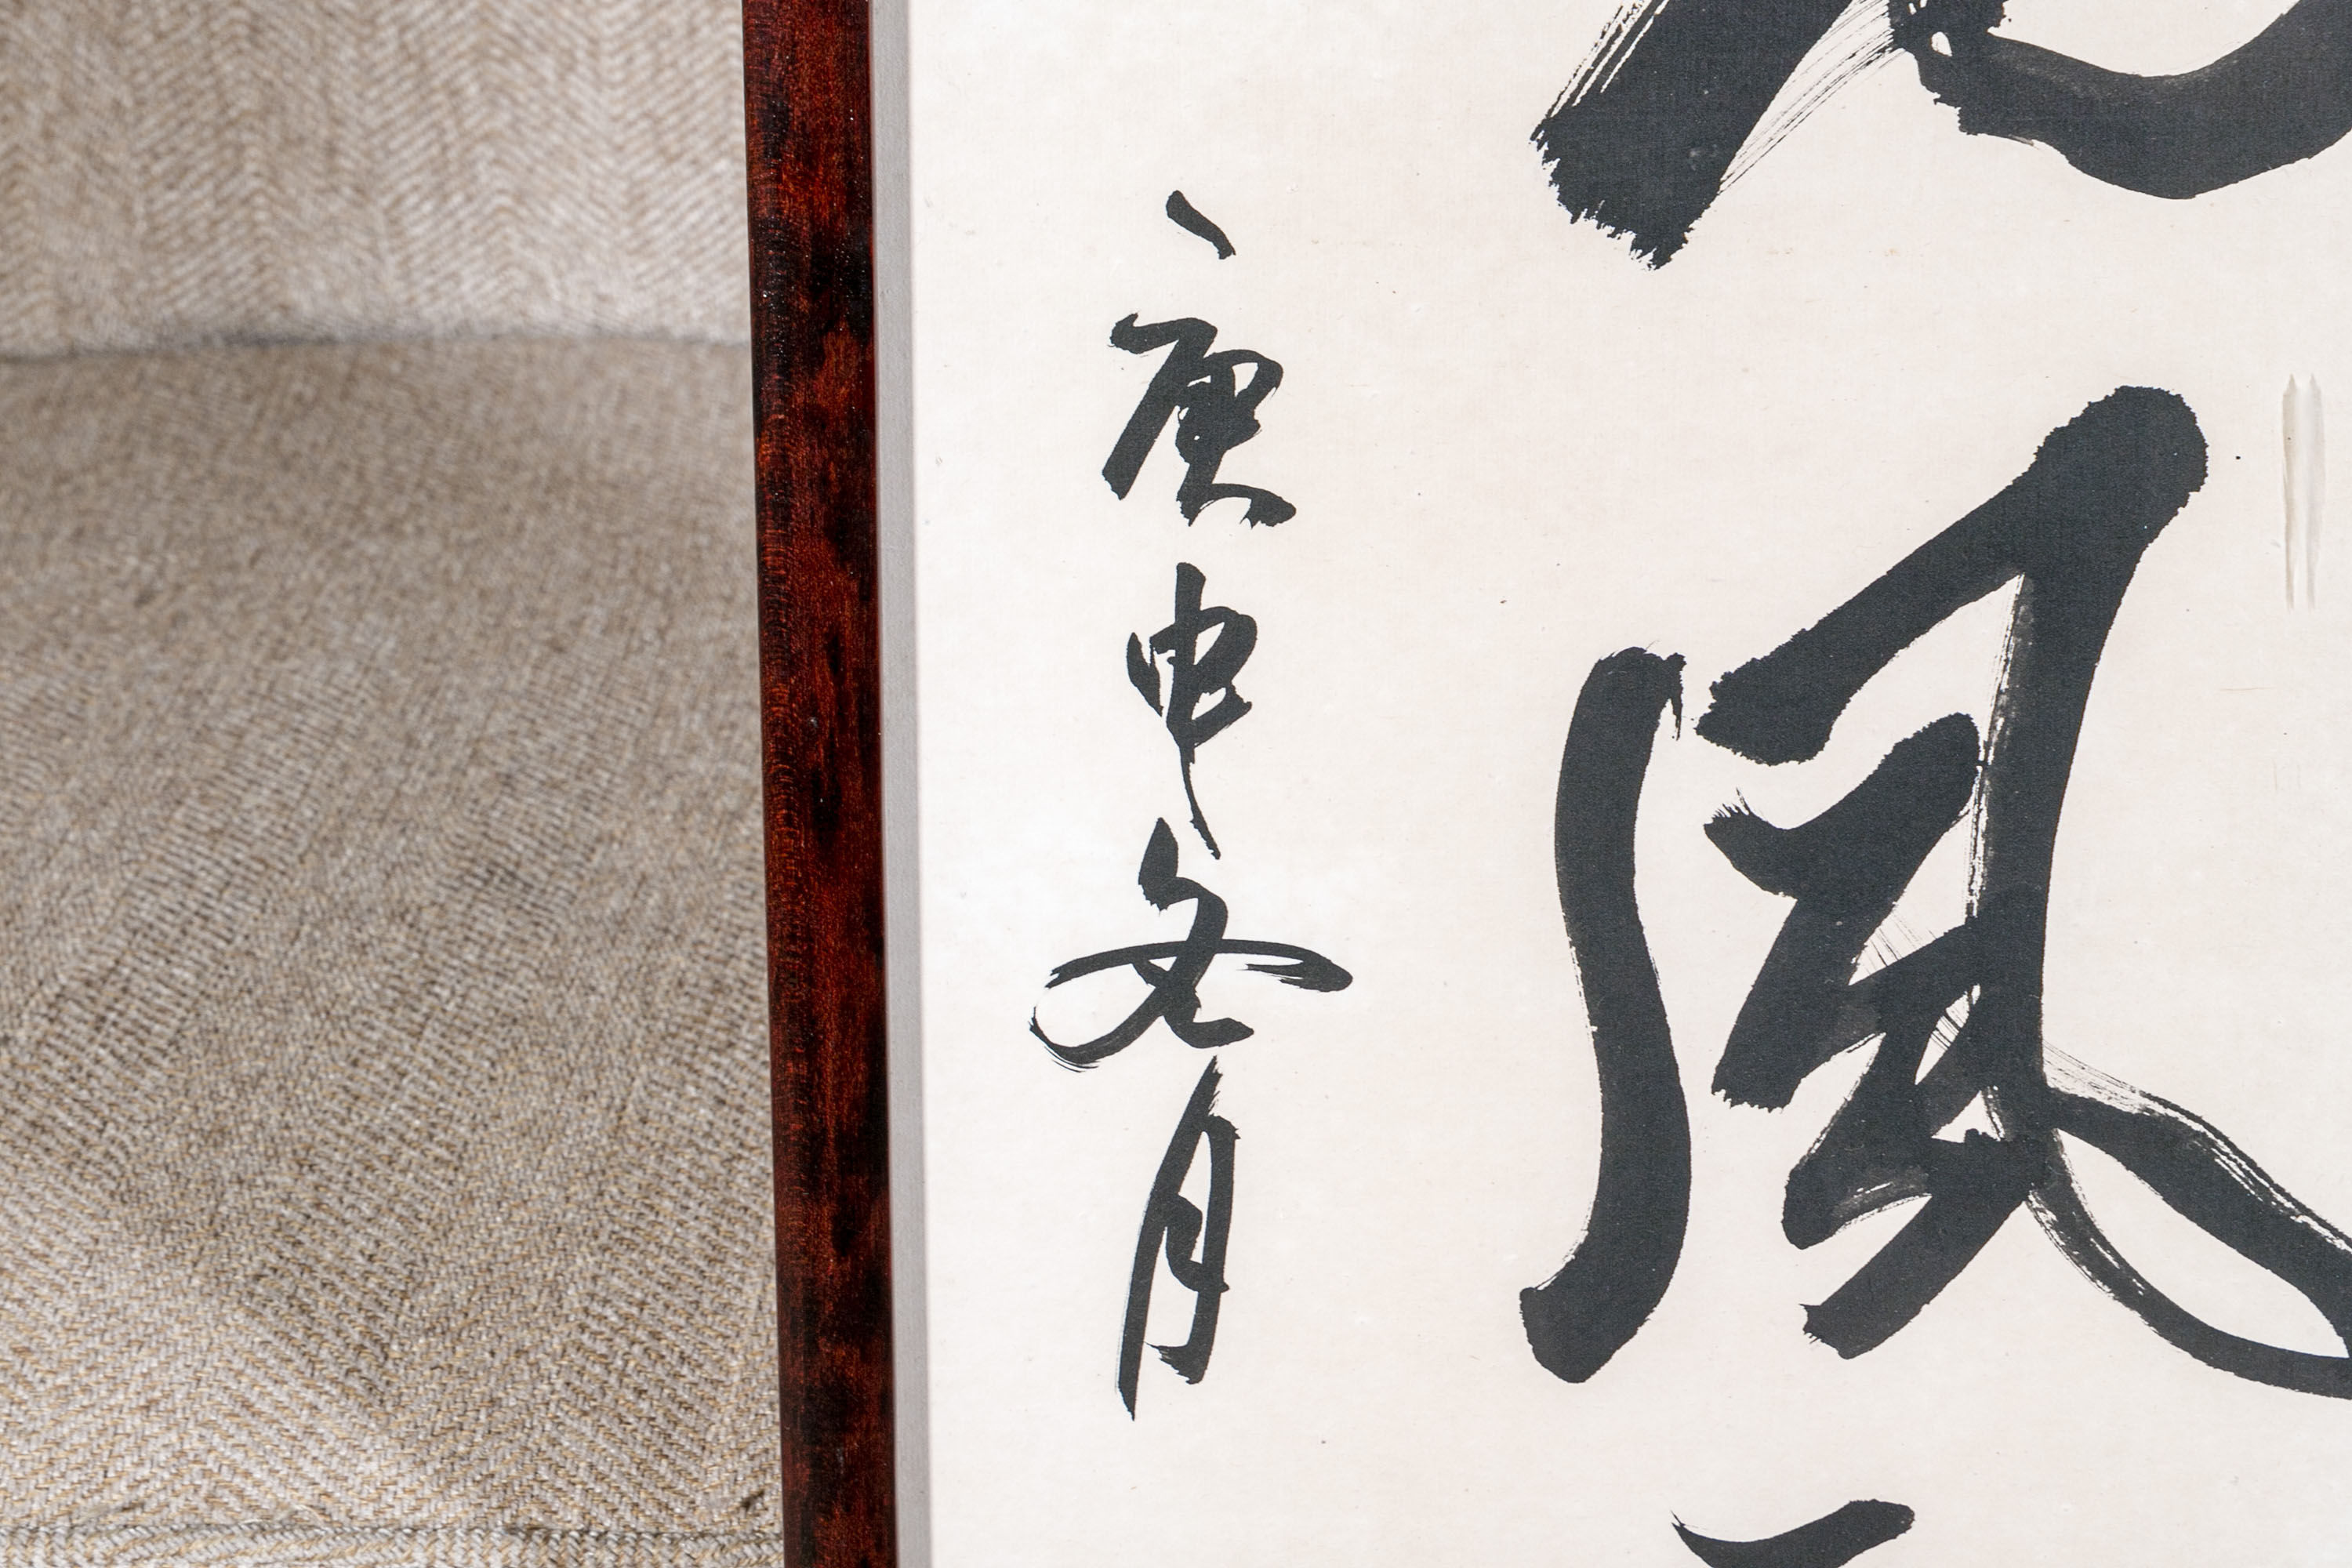 風
庚申文月